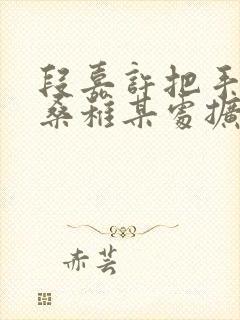 段嘉許把手
桑稚某處擴
赤芸